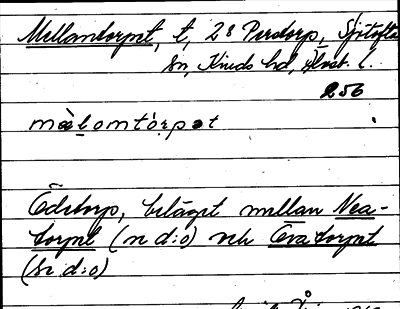 Mellantorpet, t, 28 Perstorp, Sjötofta
sn, Kinds hd, Älvsb. l.
256
mælomtórpət
Ödetorp, beläget mellan Nea-
torpet (se d:o) och Övatorpet
(se d:o)